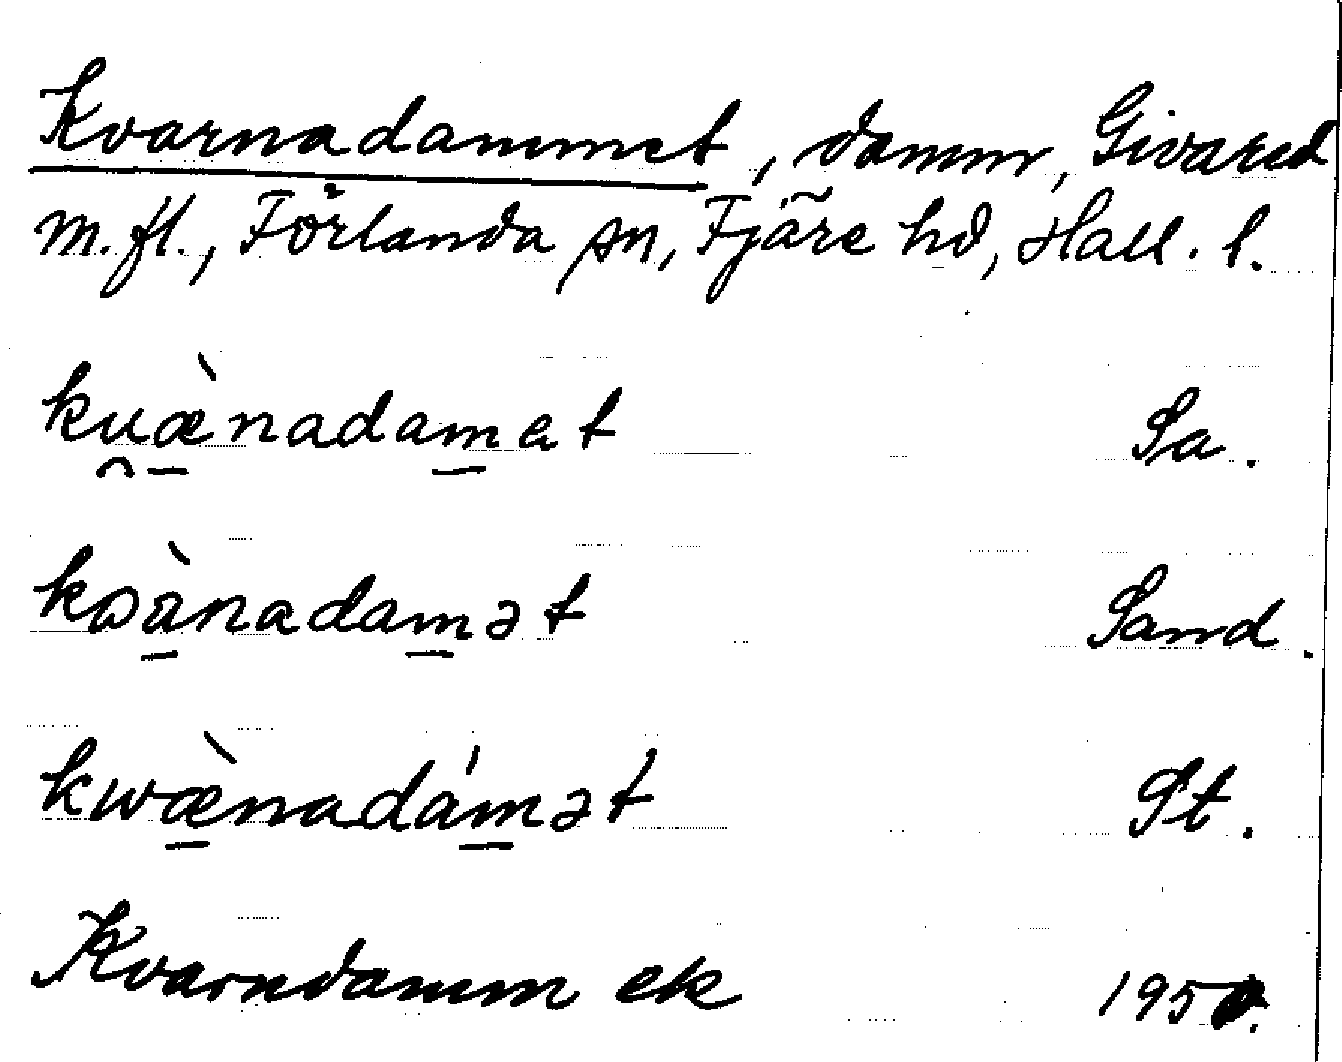 Kvarnadammet, damm, Givared
m.fl., Förlanda sn, Fjäre hd, Hall. l.
ku̯æ̠̀nadam̠et Sa.
kɷà̠nadam̠ət Sand.
kwæ̠̀nadám̠ət St.
Kvarndamm ek 1950.